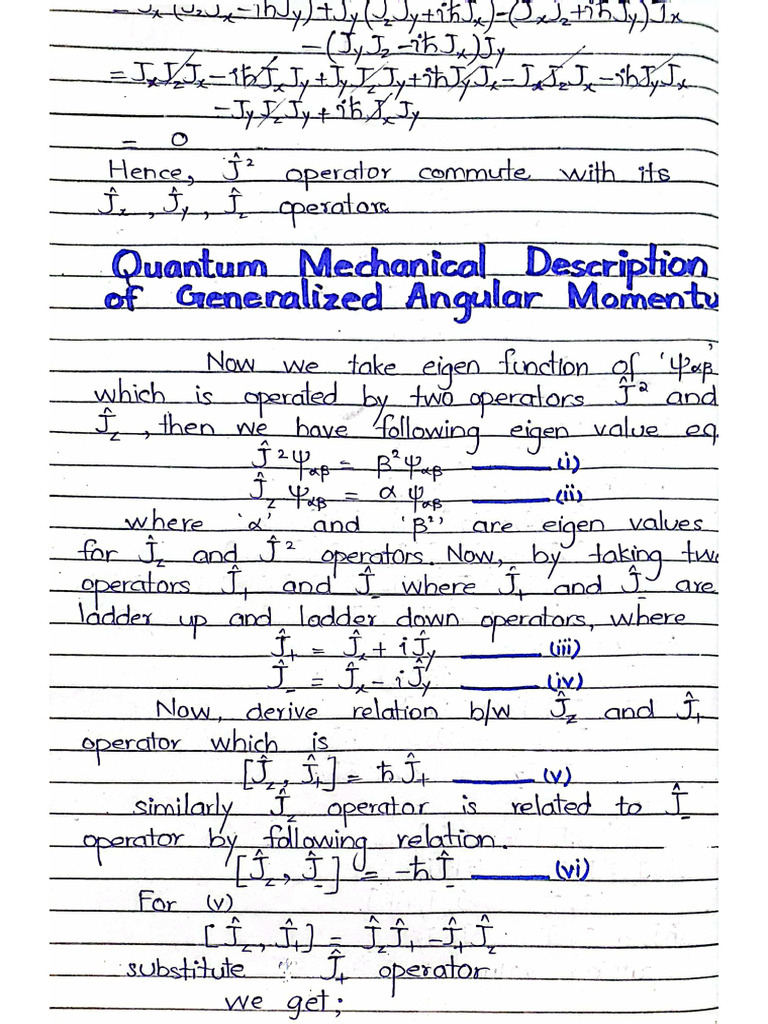 = Jx (JzJx - iħJy) + Jy (JzJy + iħJx) - (JxJz + iħJy) Jx
- (JyJz - iħJx) Jy
= JxJzJx - iħJxJy + JyJzJy + iħJyJx - JxJzJx - iħJyJx
- JyJzJy + iħJxJy
= 0
Hence, Ĵ² operator commute with its
Ĵx , Ĵy , Ĵz operators
Quantum Mechanical Description
of Generalized Angular Momentu
Now we take eigen function of 'Ψαβ'
which is operated by two operators Ĵ² and
Ĵz , then we have following eigen value eq.
Ĵ²Ψαβ = β²Ψαβ (i)
Ĵz Ψαβ = α Ψαβ (ii)
where 'α' and 'β²' are eigen values
for Ĵz and Ĵ² operators. Now, by taking two
operators Ĵ+ and Ĵ- where Ĵ+ and Ĵ- are
ladder up and ladder down operators, where
Ĵ+ = Ĵx + iĴy (iii)
Ĵ- = Ĵx - iĴy (iv)
Now, derive relation b/w Ĵz and Ĵ+
operator which is
[Ĵz, Ĵ+] = ħĴ+ (v)
similarly Ĵz operator is related to Ĵ-
operator by following relation.
[Ĵz, Ĵ-] = -ħĴ- (vi)
For (v)
[Ĵz, Ĵ+] = ĴzĴ+ - Ĵ+Ĵz
substitute Ĵ+ operator
we get;